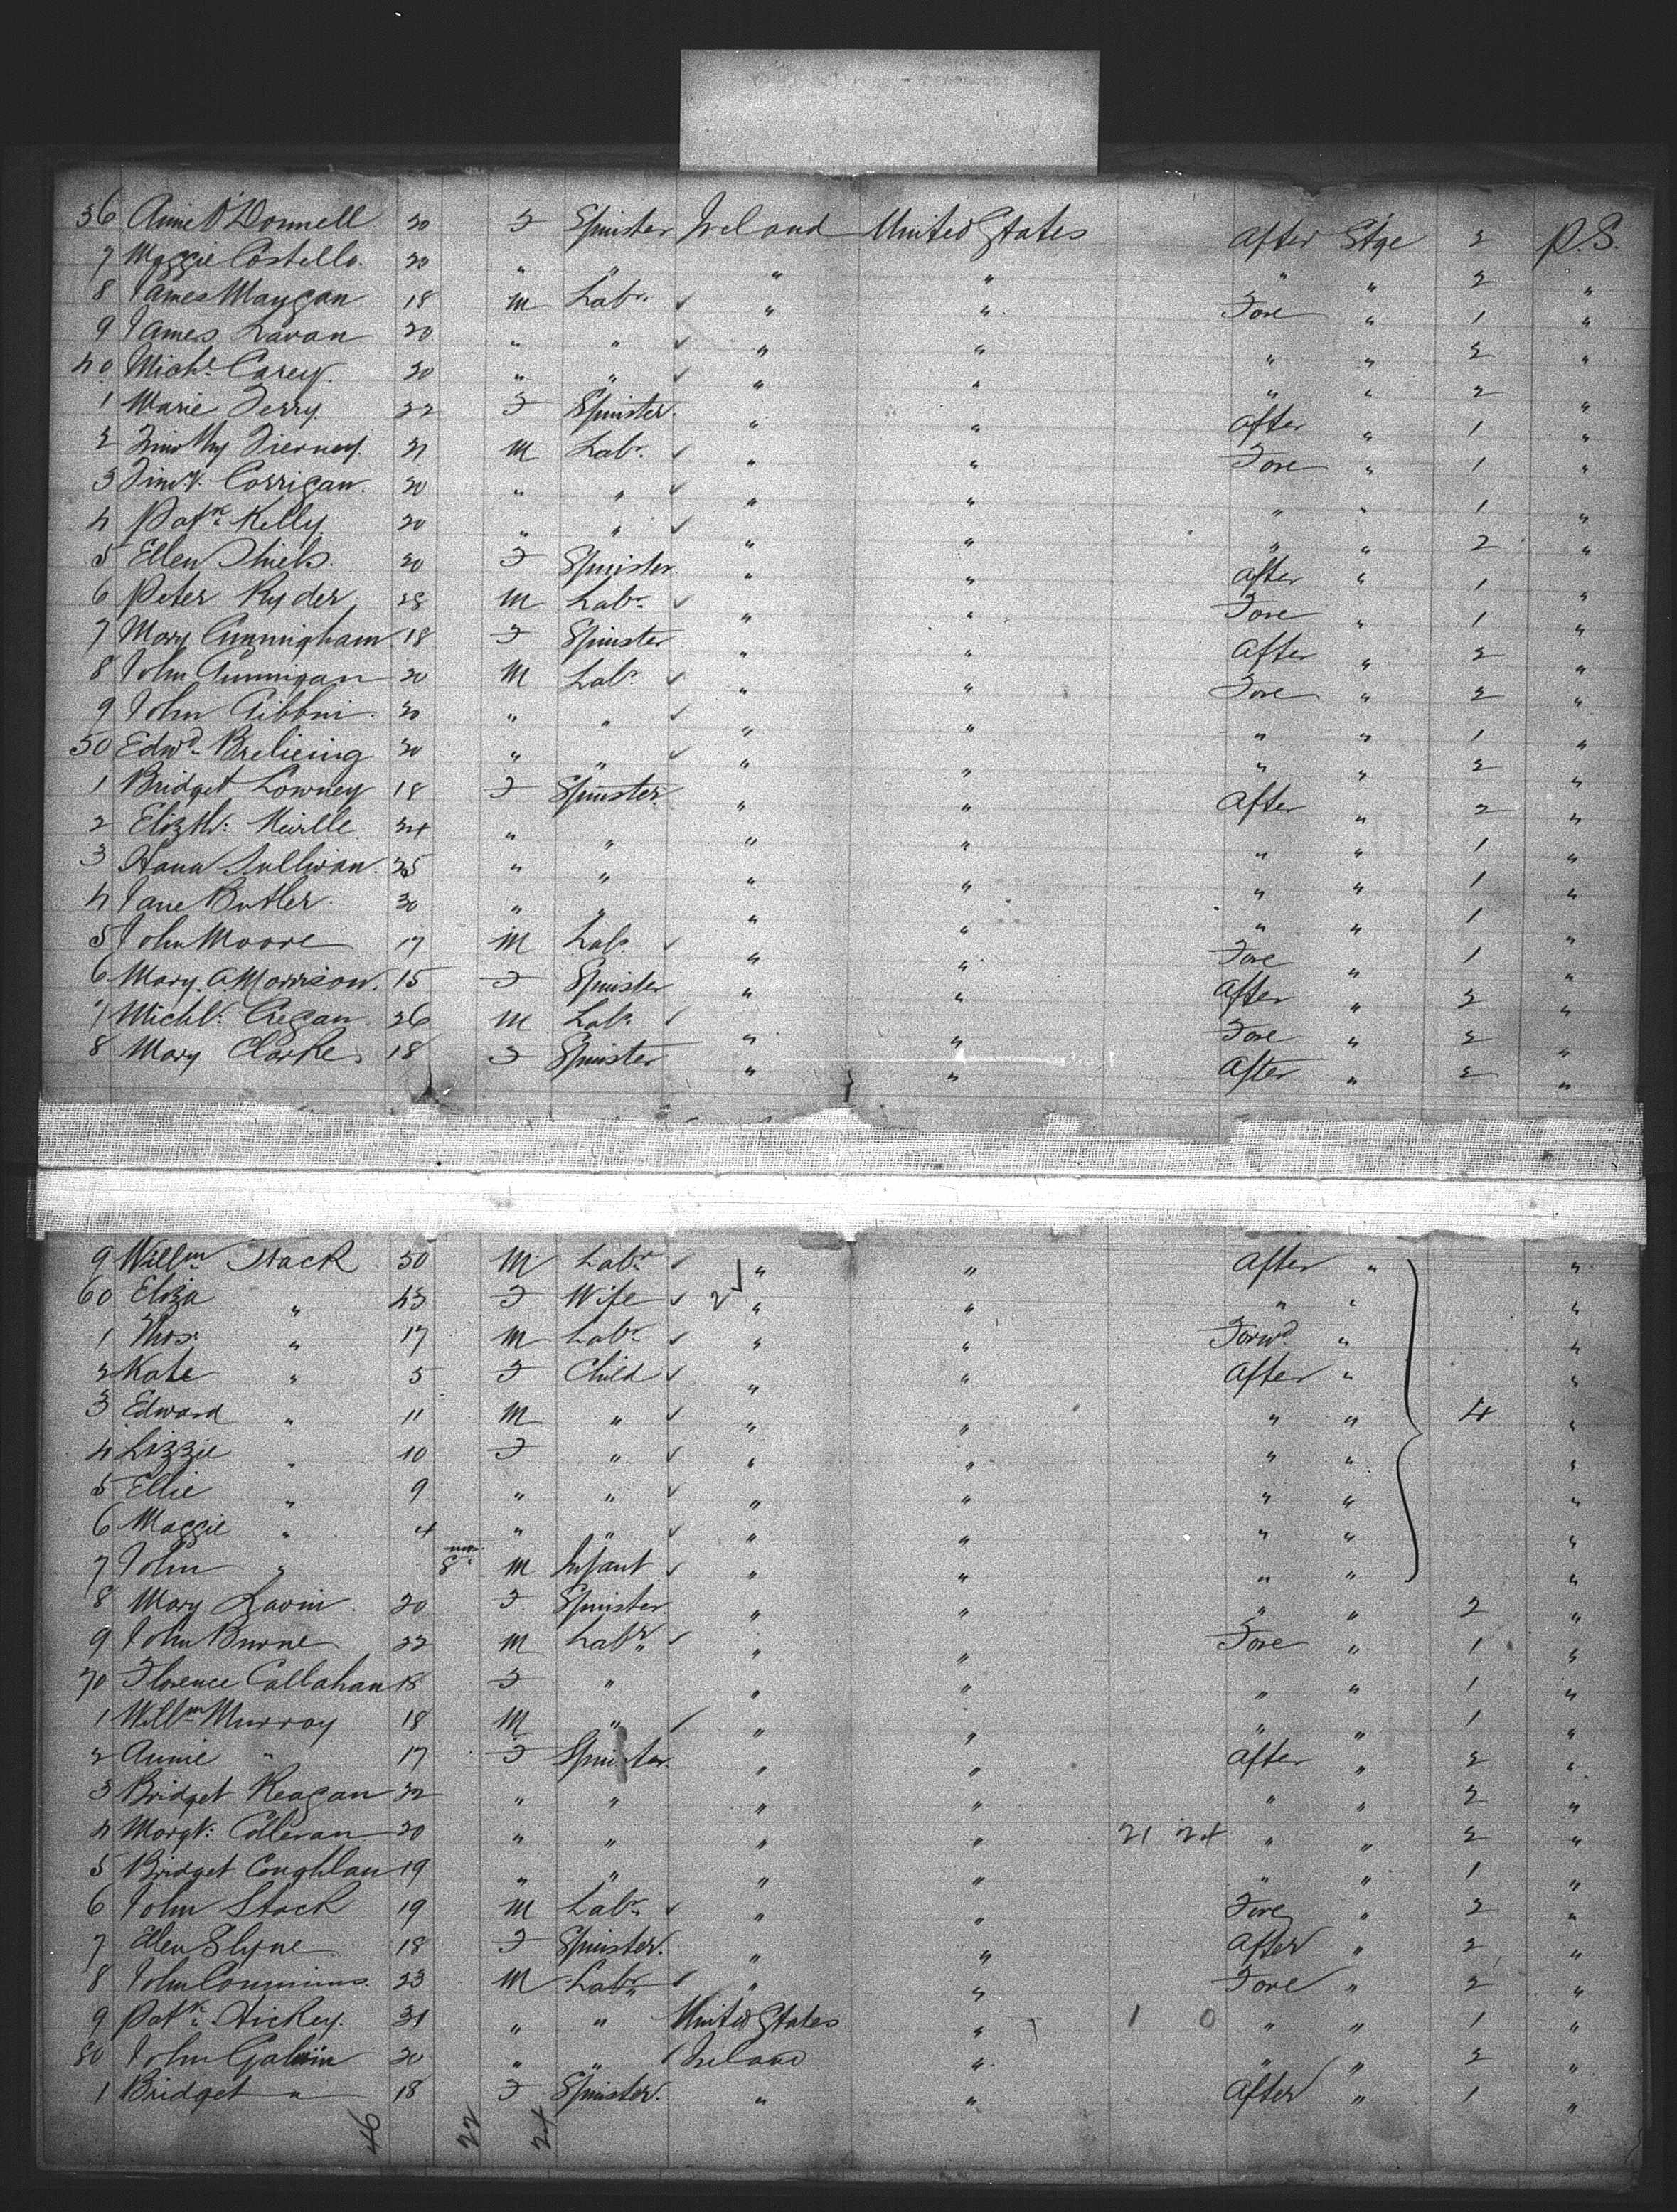 36 Annie O'Donnell 20 F Spinster Ireland United States After Stge 2 P.S.
7 Maggie Costello. 20 " " " " " " 2 "
8 James Maugan 18 M Labr. ✓ " " Fore " 1 "
9 James Lavan 20 " " ✓ " " " " 2 "
40 Michl. Carey. 20 " " ✓ " " " " 2 "
1 Marie Terry. 22 F Spinster. " " After " 1 "
2 Timothy Tierney. 21 M Labr. ✓ " " Fore " 1 "
3 Timy. Corrigan. 20 " " ✓ " " " " 1 "
4 Patk. Kelly. 20 " " ✓ " " " " 2 "
5 Ellen Shiels. 20 F Spinster. " " After " 1 "
6 Peter Ryder. 28 M Labr. ✓ " " Fore " 1 "
7 Mary Cunningham 18 F Spinster " " After " 2 "
8 John Cunnigan 20 M Labr. ✓ " " Fore " 2 "
9 John Gibbni. 20 " " ✓ " " " " 1 "
50 Edwd. 20 " " ✓ " " " " 2 "
1 Bridget Lowney 18 F Spinster. " " After " 2 "
2 Elizth: 24 " " " " " " 1 "
3 Hana Sullivan. 25 " " " " " " 1 "
4 Jane Butler. 30 " " " " " " 1 "
5 John Moore 17 M Labr. ✓ " " Fore " 1 "
6 Mary. A Morrison. 15 F Spinster " " After " 2 "
7 Michl: Cregan. 26 M Labr. ✓ " " Fore " 2 "
8 Mary Clarke. 18 F Spinster " " After " 2 "
9 Willm. Stack 50 M Labr. ✓ " " After " "
60 Eliza " 43 F Wife ✓ 2 ✓ " " " " "
1 Thos: " 17 M Labr. ✓ " " Forwd. " "
2 Kate " 5 F Child ✓ " " After " "
3 Edward " 11 M " ✓ " " " " 4 "
4 Lizzie " 10 F " ✓ " " " " "
5 Ellie " 9 " " ✓ " " " " "
6 Maggie " 4 " " ✓ " " " " "
7 John " 8 mos. M Infant ✓ " " " " "
8 Mary Lavin. 20 F Spinster. " " " " 2 "
9 John Burne 22 M Labr. ✓ " " Fore " 1 "
70 Florence Callahan 18 F " " " " " 1 "
1 Willm. Murray 18 M " ✓ " " " " 1 "
2 Annie " 17 F Spinster " " After " 2 "
3 Bridget Reagan 22 " " " " " " 2 "
4 Margt: Colleran 20 " " " " 21 24 " " 2 "
5 Bridget Coughlan 19 " " " " " " 1 "
6 John Stack 19 M Labr. ✓ " " Fore " 2 "
7 Ellen Slyne 18 F Spinster. " " After " 2 "
8 John Commins. 23 M Labr. ✓ " " Fore " 2 "
9 Patk. Hickey. 31 " " United States " 1 0 " " 1 "
80 John Galvin 20 " " ✓ Ireland " " " 2 "
1 Bridget " 18 F Spinster. " " After " 1 "
46 22 24